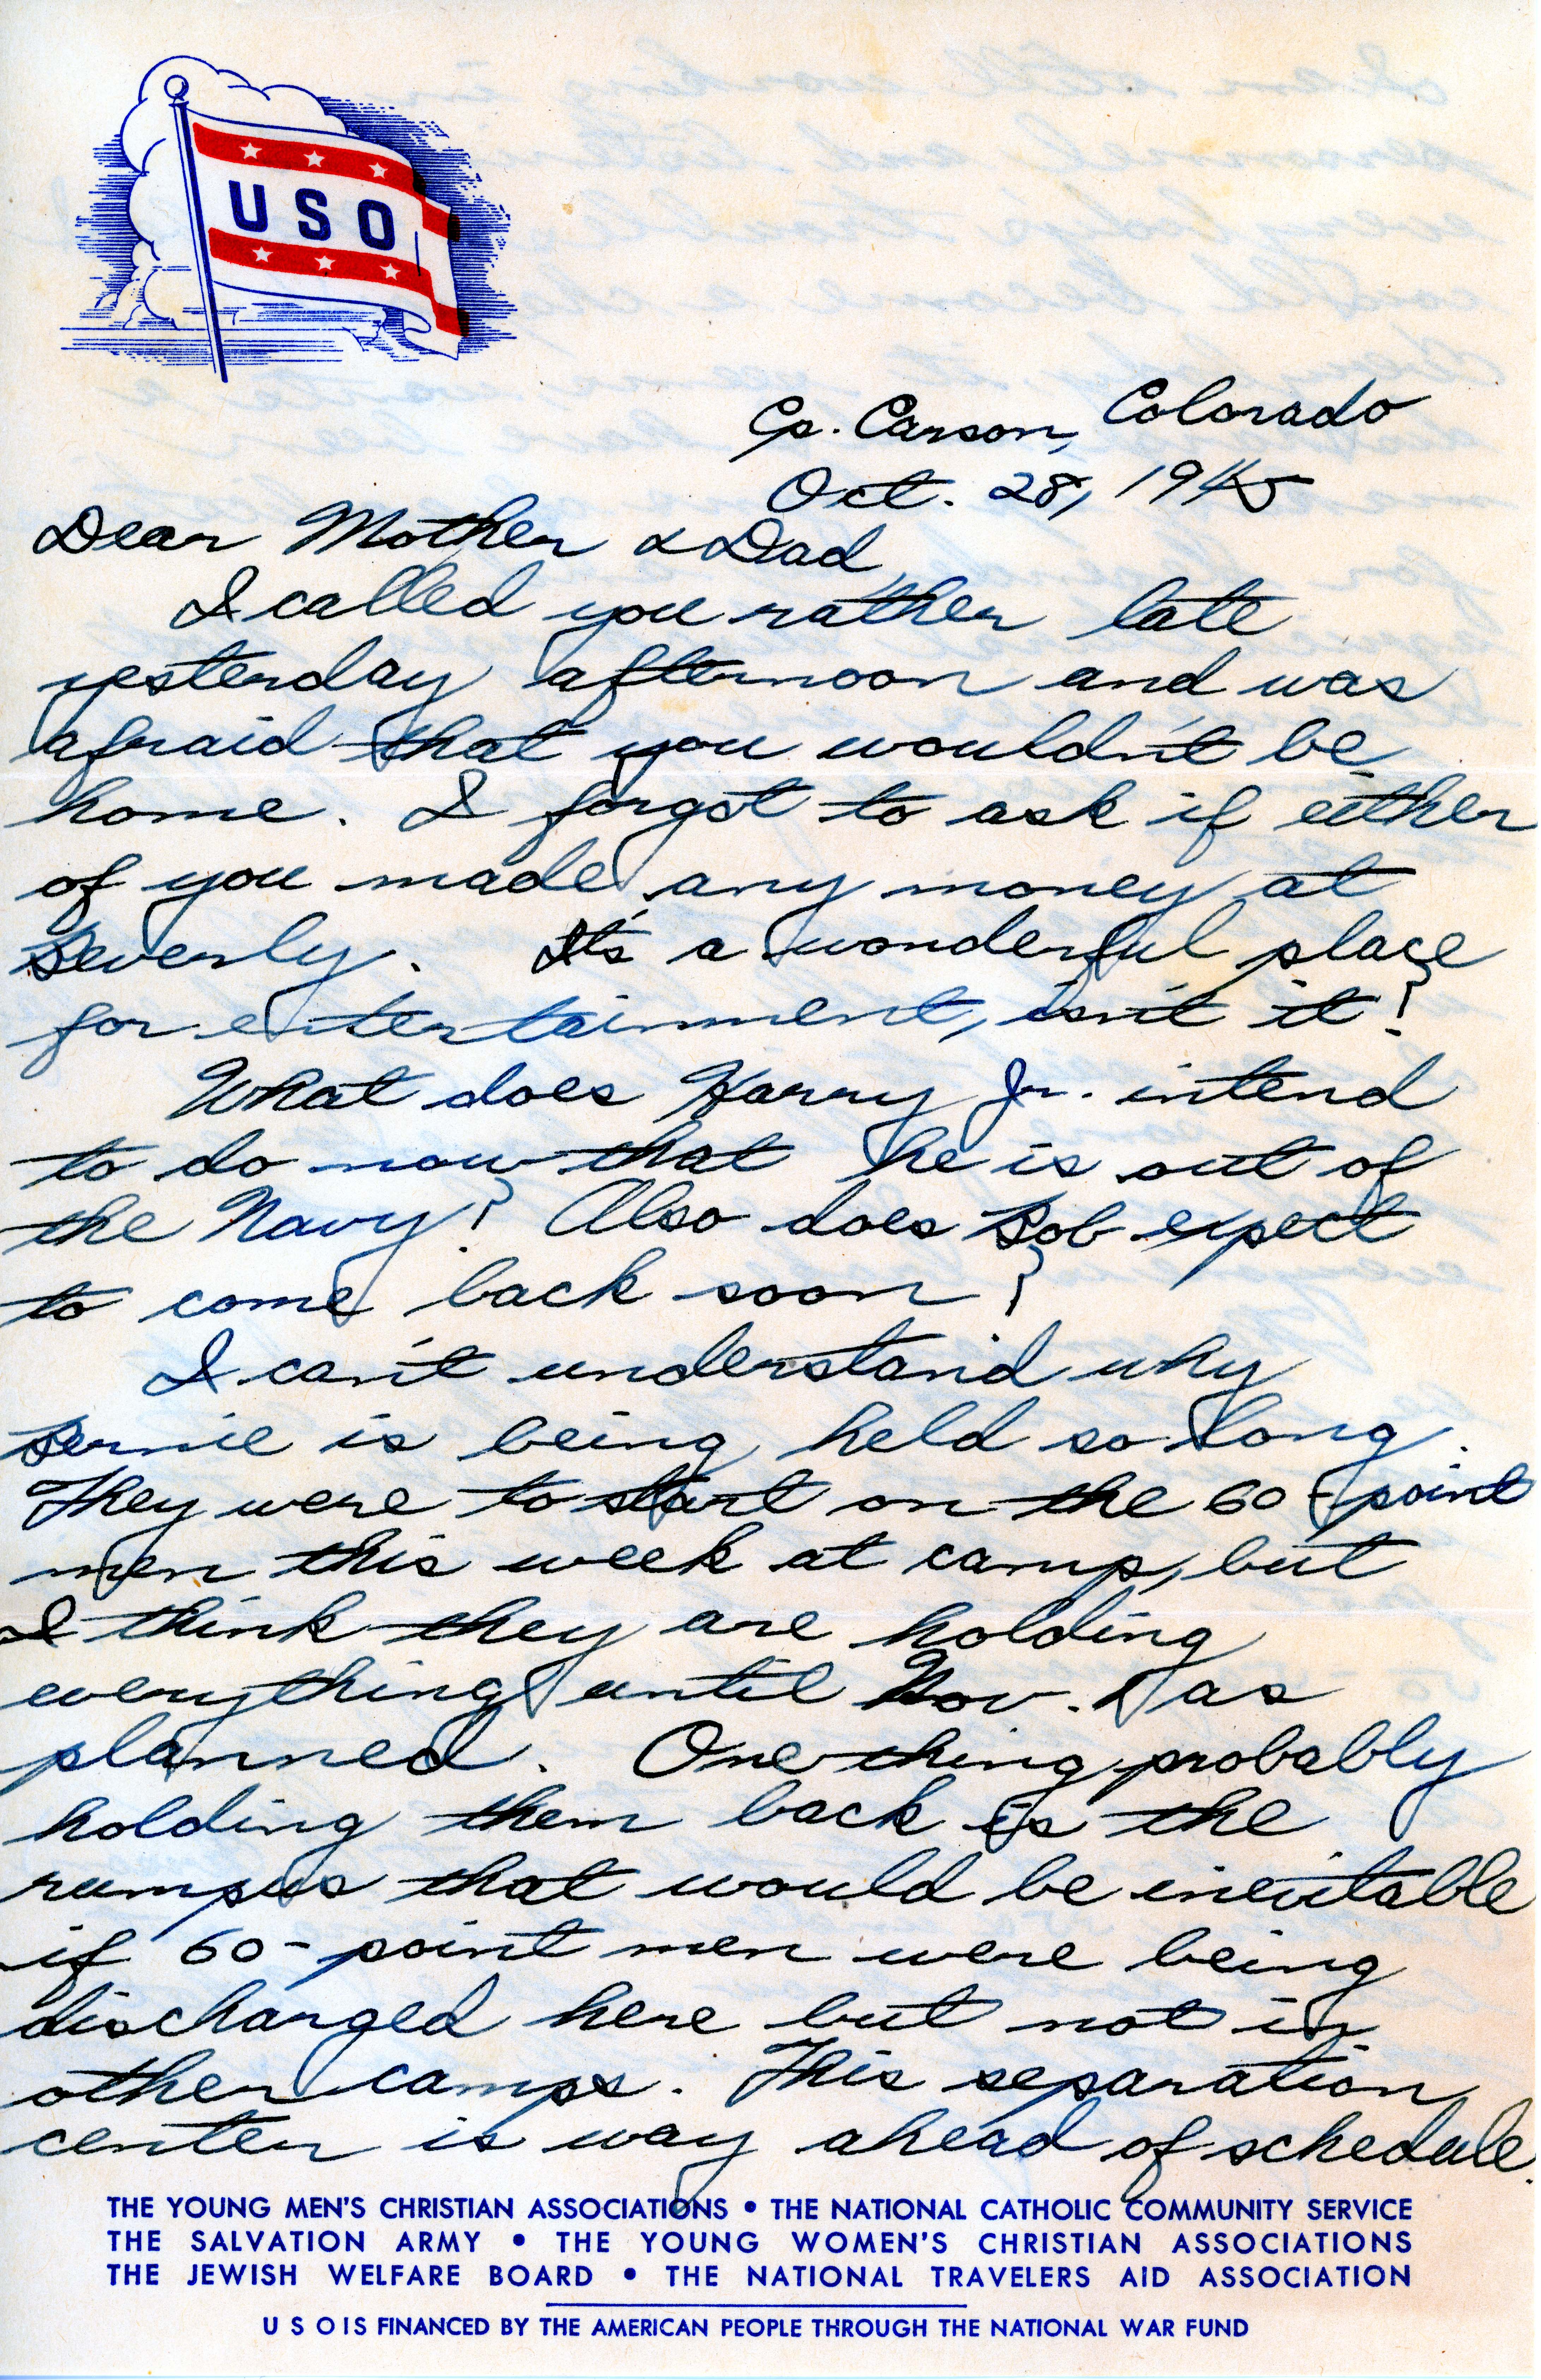 USO
Cp. Carson, Colorado
Oct. 28, 1945
Dear Mother & Dad,
I called you rather late
yesterday afternoon and was
afraid that you wouldn't be
home. I forgot to ask if either
of you made any money at
Beverly. It's a wonderful place
for entertainment, isn't it?
What does Harry Jr. intend
to do now that he is out of
the Navy? Also does Bob expect
to come back soon?
I can't understand why
Bernie is being held so long.
They were to start on the 60-point
men this week at camp, but
I think they are holding
everything until Nov. 1 as
planned. One thing probably
holding them back is the
rumpus that would be inevitable
if 60-point men were being
discharged here but not in
other camps. This separation
center is way ahead of schedule.
THE YOUNG MEN'S CHRISTIAN ASSOCIATIONS • THE NATIONAL CATHOLIC COMMUNITY SERVICE
THE SALVATION ARMY • THE YOUNG WOMEN'S CHRISTIAN ASSOCIATIONS
THE JEWISH WELFARE BOARD • THE NATIONAL TRAVELERS AID ASSOCIATION
U S O IS FINANCED BY THE AMERICAN PEOPLE THROUGH THE NATIONAL WAR FUND